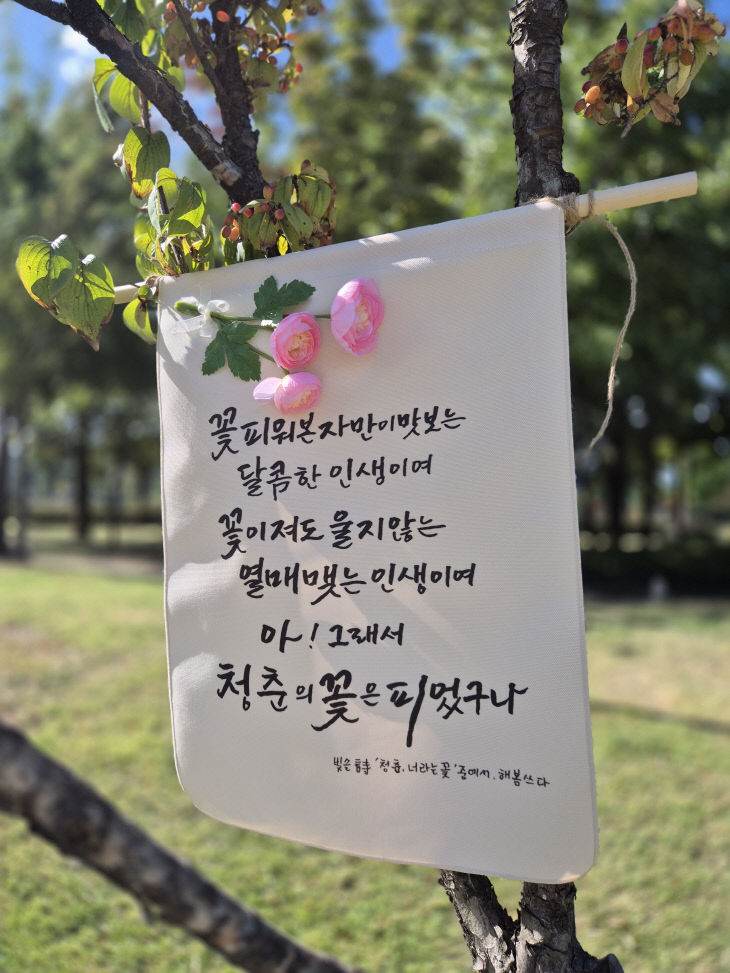 꽃 피워본 자만이 맛보는
달콤한 인생이여
꽃이 져도 울지 않는
열매 맺는 인생이여
아! 그래서
청춘의 꽃은 피었구나
'청춘, 너라는 꽃' 중에서. 해봄쓰다